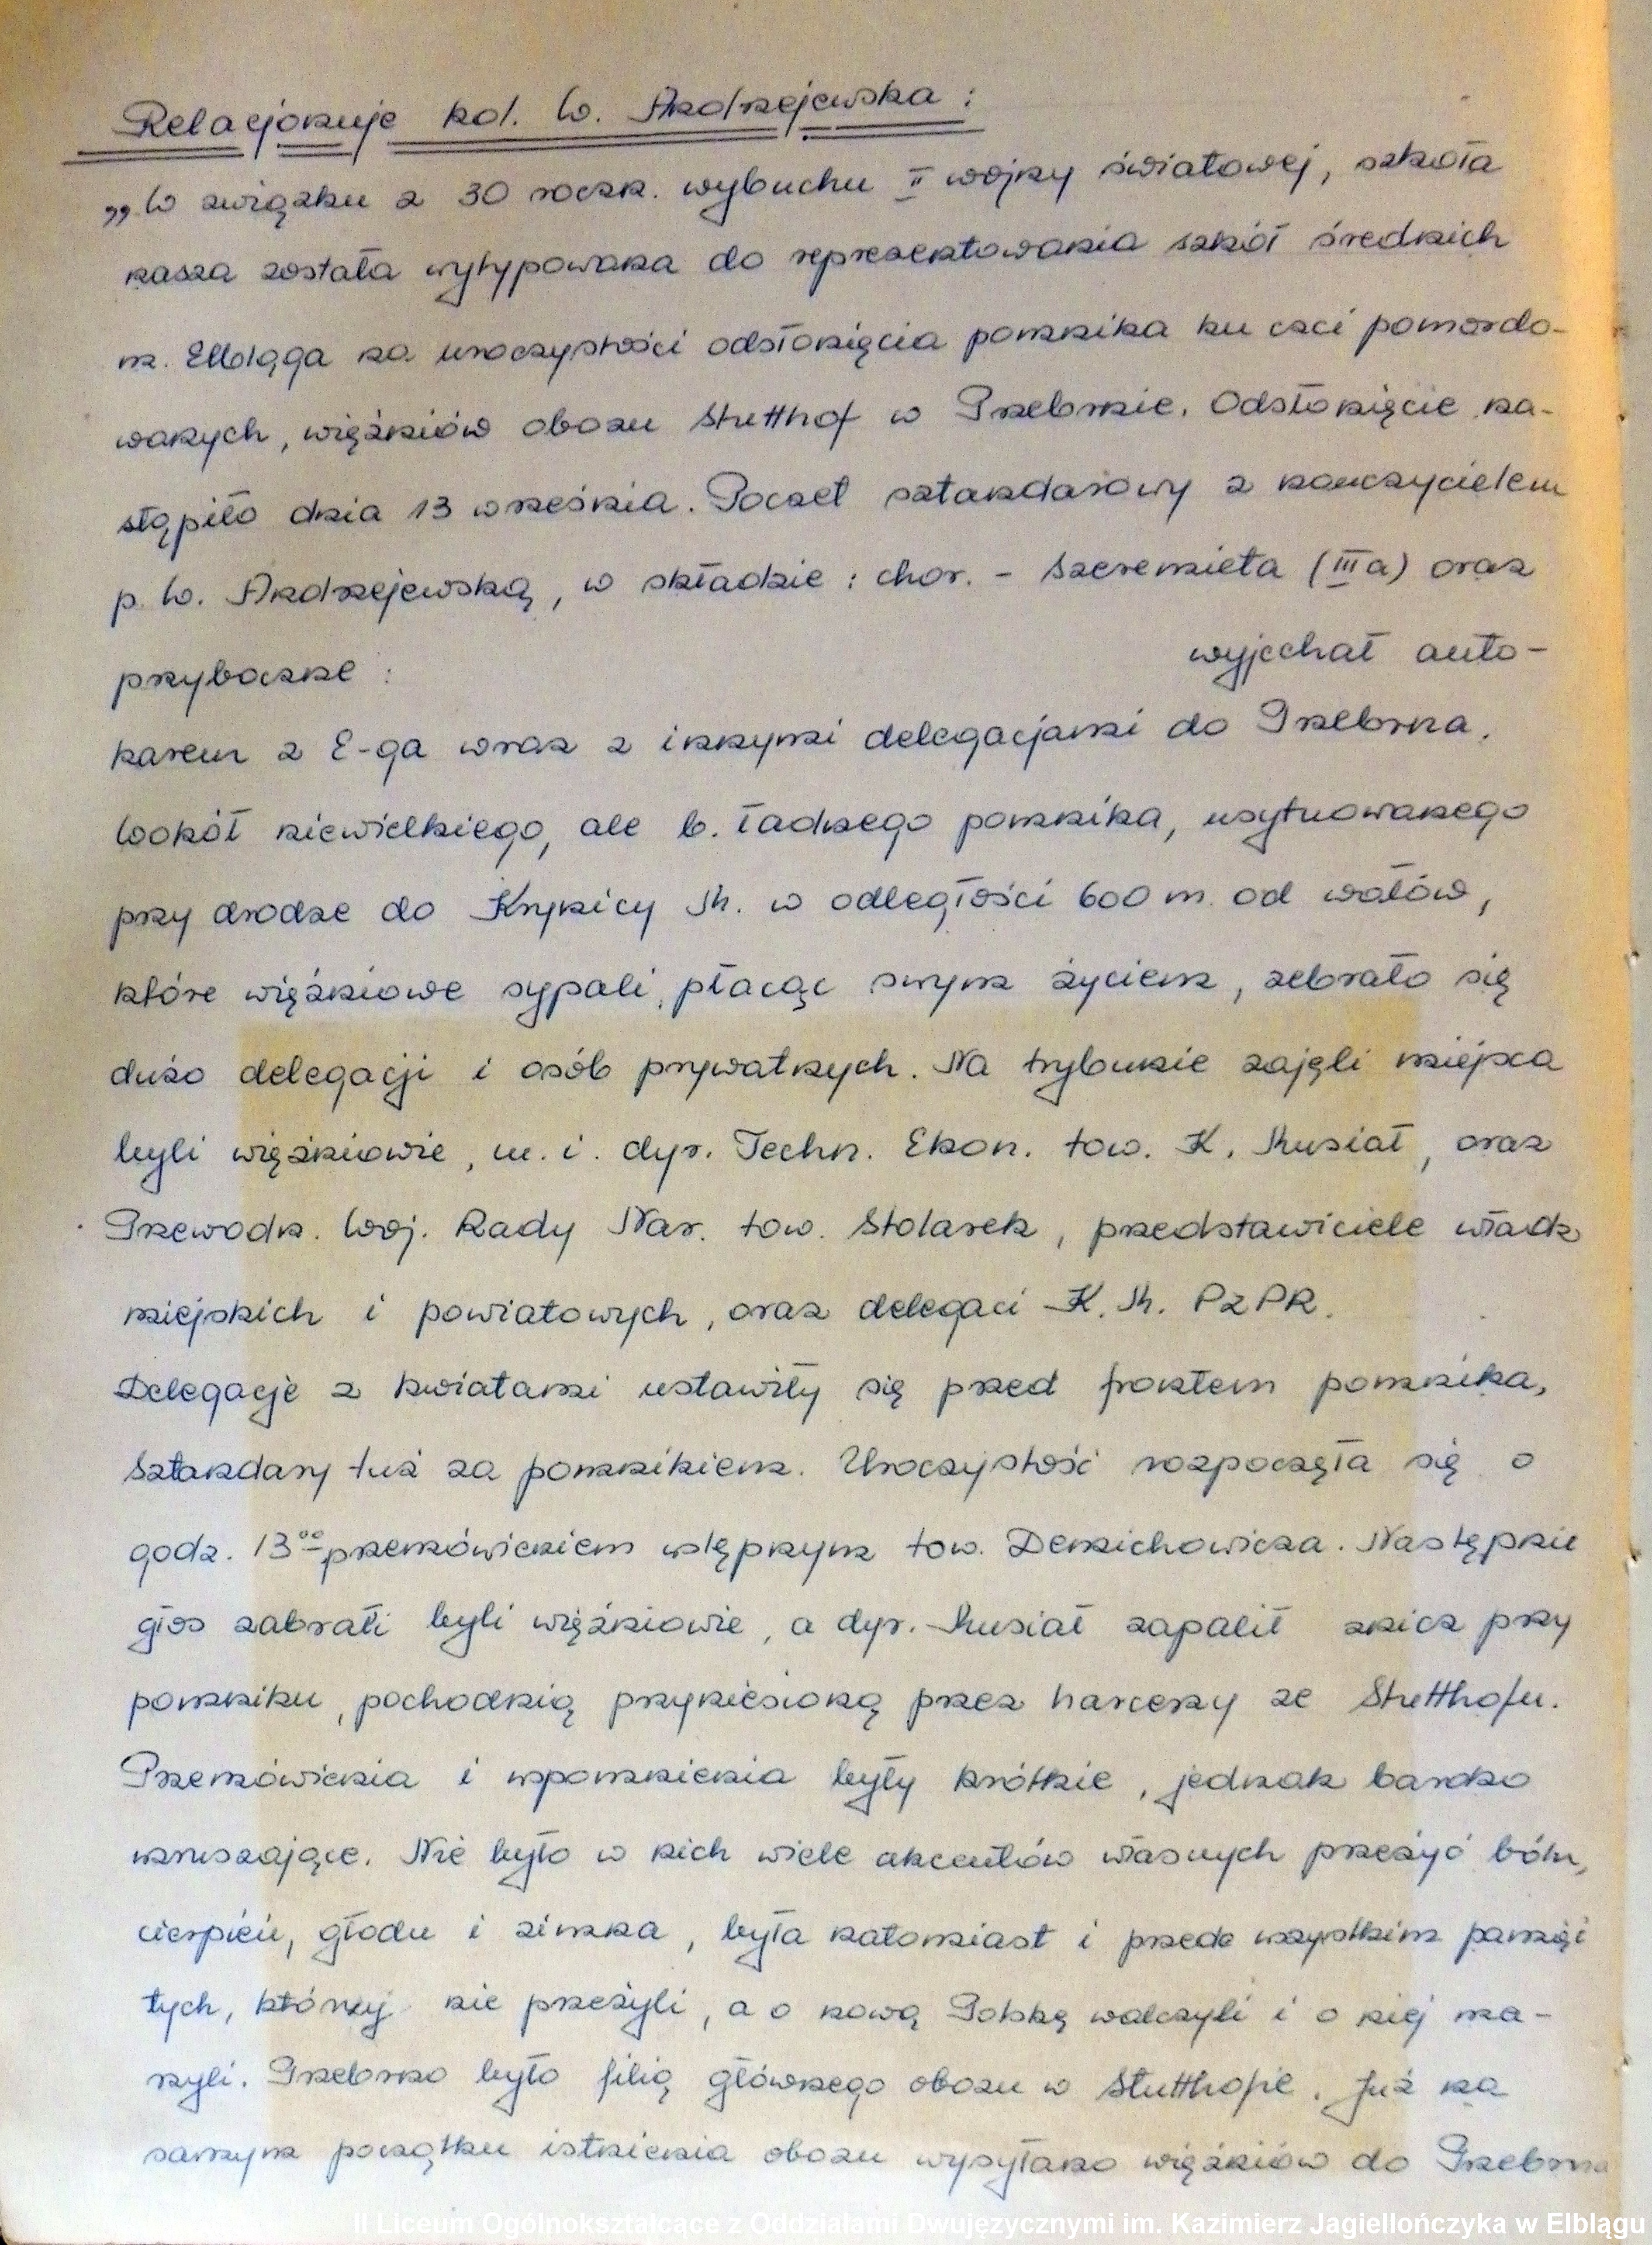 Relacjonuje kol. W. Andrzejewska:
„W związku z 30 roczn. wybuchu II wojny światowej, szkoła
nasza została wytypowana do reprezentowania szkół średnich
m. Elbląga na uroczystości odsłonięcia pomnika ku czci pomordo-
wanych, więźniów obozu Stutthof w Przebrnie. Odsłonięcie na-
stąpiło dnia 13 września. Poczet sztandarowy z nauczycielem
p. W. Andrzejewską, w składzie: chor. - Szeremieta (III a) oraz
przyboczne: wyjechał auto-
karem z E-ga wraz z innymi delegacjami do Przebrna.
Wokół niewielkiego, ale b. ładnego pomnika, usytuowanego
przy drodze do Krynicy M. w odległości 600 m. od wałów,
które więźniowe sypali, płacąc swym życiem, zebrało się
dużo delegacji i osób prywatnych. Na trybunie zajęli miejsca
byli więźniowie, m. i. dyr. Techn. Ekon. tow. K. Musiał, oraz
Przewodn. Woj. Rady Nar. tow. Stolarek, przedstawiciele władz
miejskich i powiatowych, oraz delegaci K. M. PZPR.
Delegacje z kwiatami ustawiły się przed frontem pomnika,
Sztandary tuż za pomnikiem. Uroczystość rozpoczęła się o
godz. 13⁰⁰ przemówieniem wstępnym tow. Demichowicza. Następnie
głos zabrali byli więźniowie, a dyr. Musiał zapalił znicz przy
pomniku, pochodnią przyniesioną przez harcerzy ze Stutthofu.
Przemówienia i wspomnienia były krótkie, jednak bardzo
wzruszające. Nie było w nich wiele akcentów własnych przeżyć bólu,
cierpień, głodu i zimna, była natomiast i przede wszystkim pamięć
tych, którzy nie przeżyli, a o nową Polskę walczyli i o niej ma-
rzyli. Przebrno było filią głównego obozu w Stutthofie. Już na
samym początku istnienia obozu wysyłano więźniów do Przebrna
II Liceum Ogólnokształcące z Oddziałami Dwujęzycznymi im. Kazimierz Jagiellończyka w Elblągu